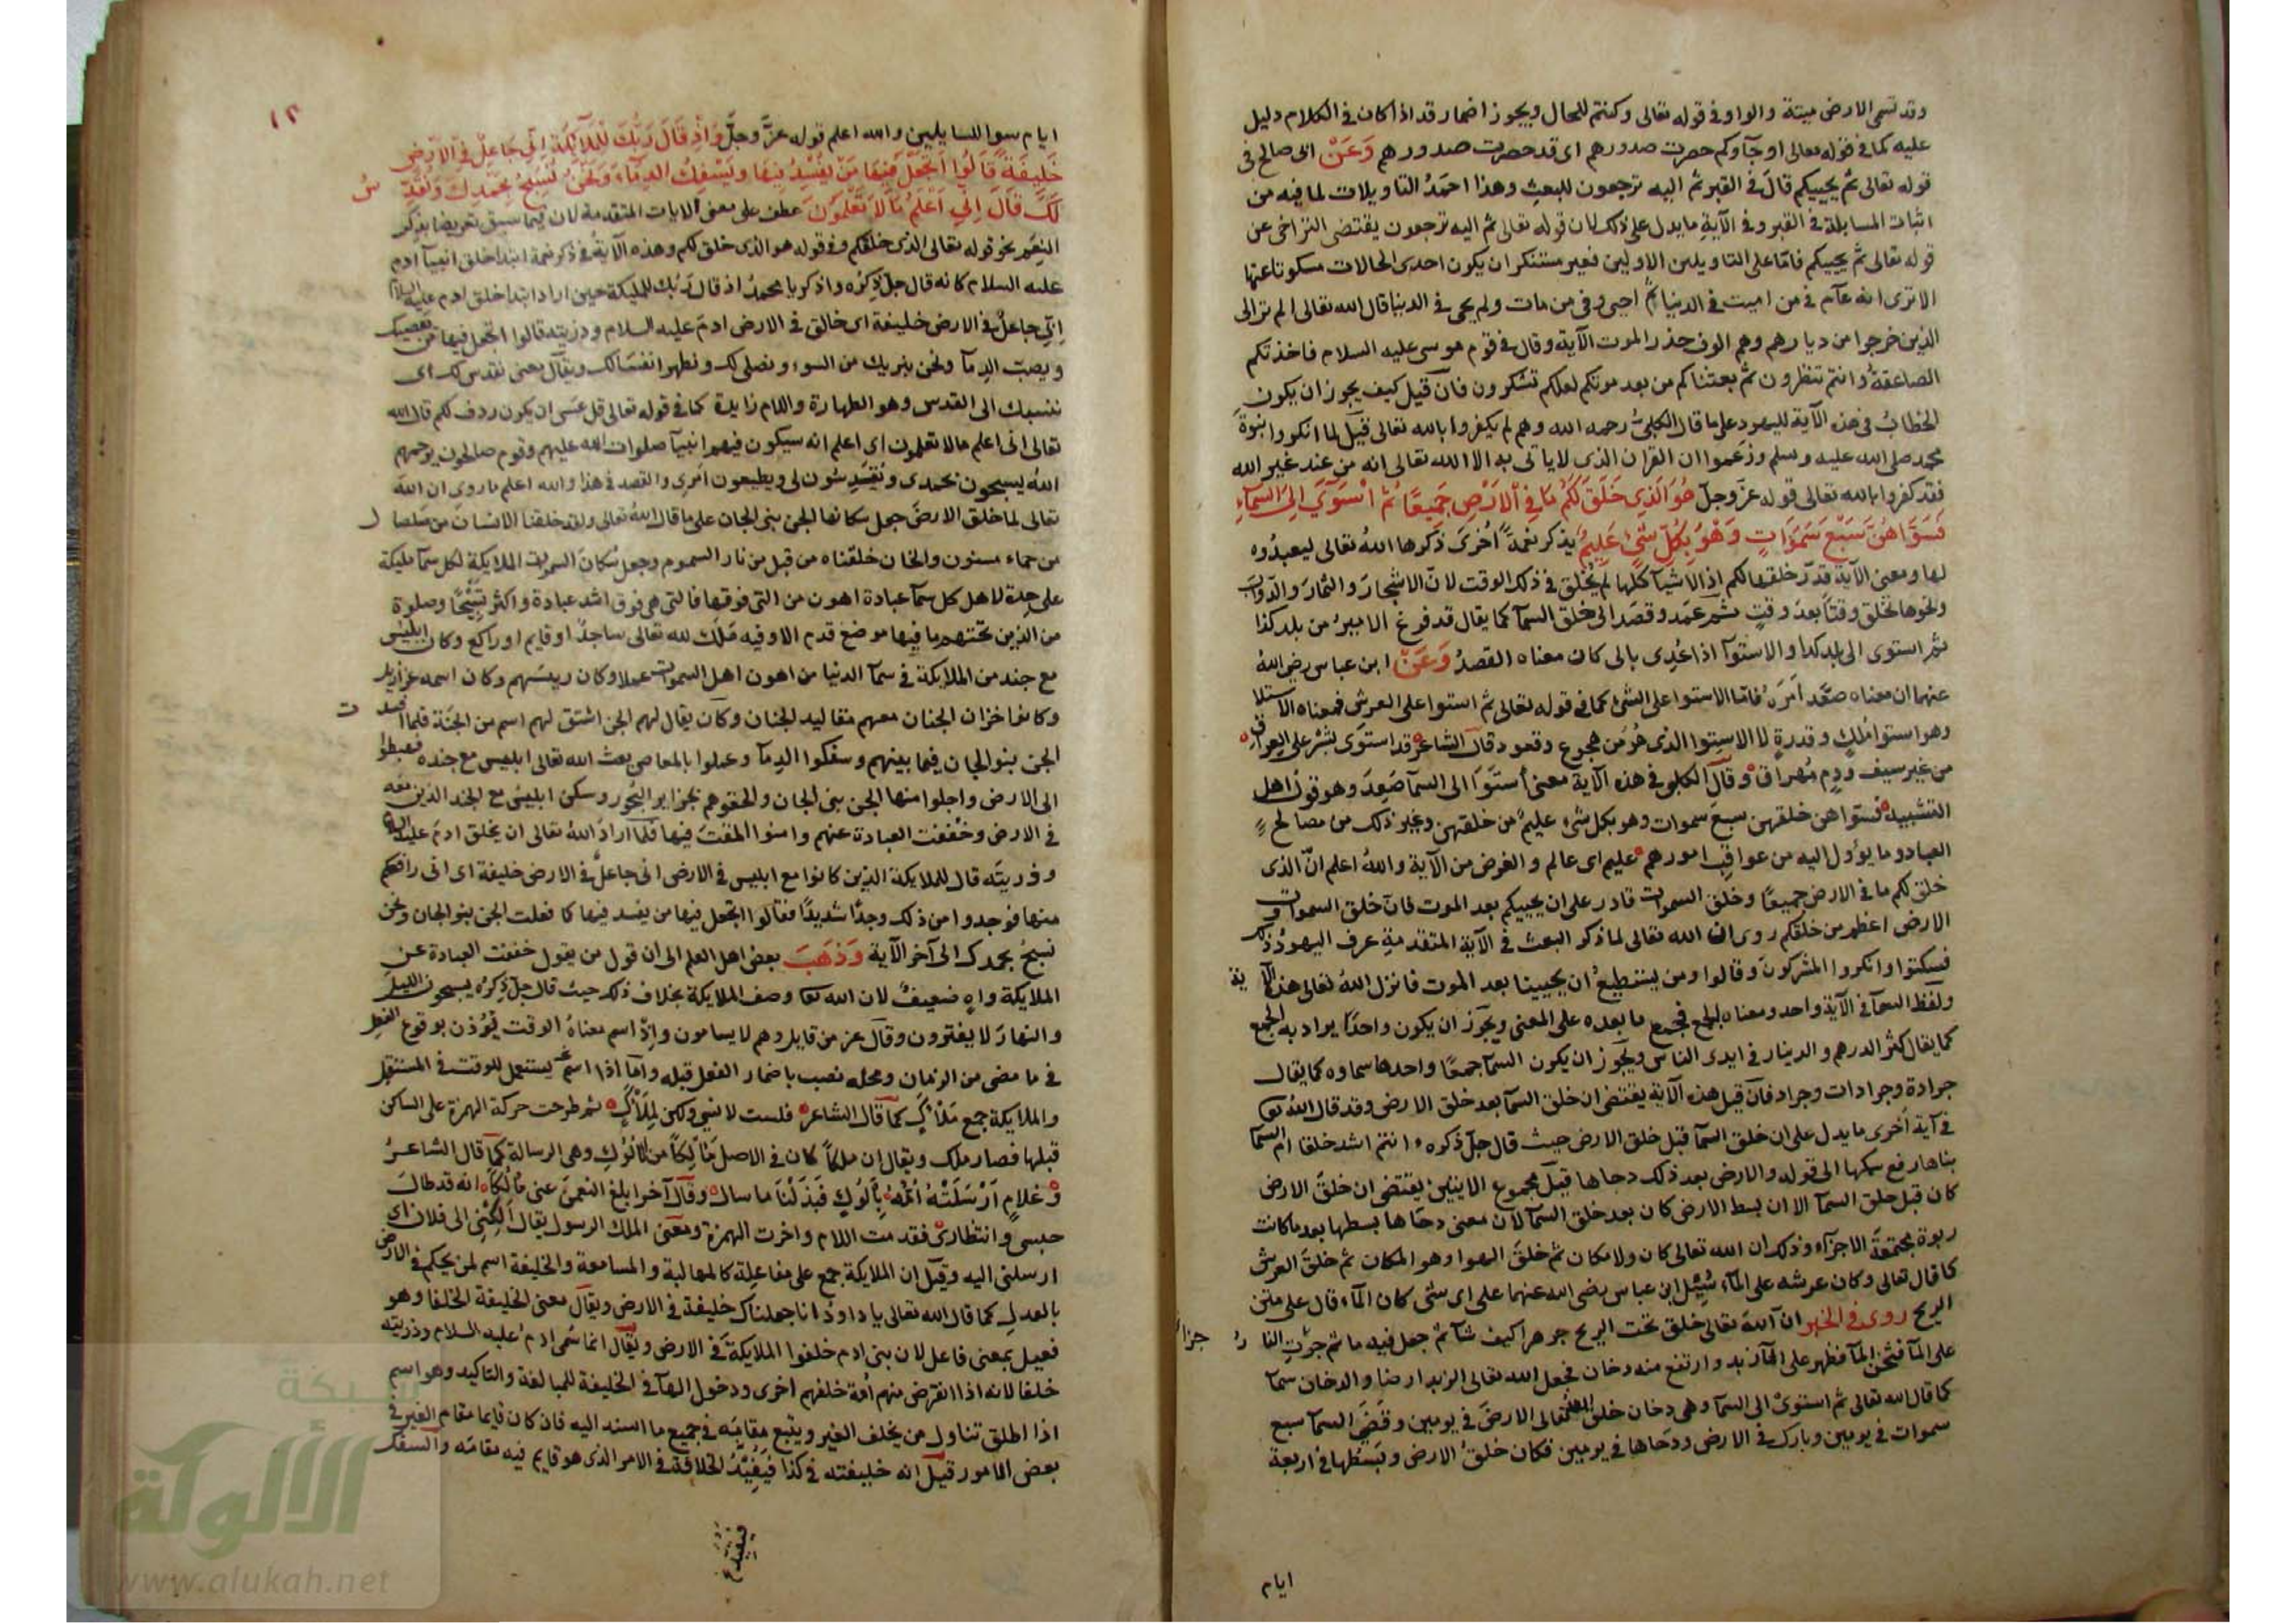 وقد تسمى الارض ميتة والواو في قوله تعالى وكنتم للحال ويجوز اضمار قد اذا كان في الكلام دليل
عليه كما في قوله تعالى او جآوكم حصرت صدورهم اى قد حصرت صدورهم وَعَنْ ابى صالح فى
قوله تعالى ثم يحييكم قال في القبر ثم اليه ترجعون للبعث وهذا احمد التاويلات لما فيه من
اثبات المسايلة في القبر وفي الآية ما يدل على ذلك لان قوله تعالى ثم اليه ترجعون يقتضى التراخى عن
قوله تعالى ثم يحييكم فاما على التاويلين الاولين فغير مستنكر ان يكون احدى الحالات مسكوتا عنها
الا ترى انه عآم في من اميت في الدنيا ثم احيى وفي من مات ولم يحى في الدنيا قال الله تعالى الم تر الى
الذين خرجوا من ديارهم وهم الوف حذر الموت الآية وقال في قوم موسى عليه السلام فاخذتكم
الصاعقة وانتم تنظرون ثم بعثناكم من بعد موتكم لعلكم تشكرون فان قيل كيف يجوز ان يكون
الخطابُ في هذه الآية لليهود على ما قال الكلبى رحمه الله وهم لم يكفروا بالله تعالى قيل لما انكروا نبوة
محمد صلى الله عليه وسلم وزعموا ان القران الذى لا ياتى به الا الله تعالى انه من عند غير الله
فقد كفروا بالله تعالى قوله عز وجل هُوَ الَّذِى خَلَقَ لَكُمْ مَا فِى الْاَرْضِ جَمِيعًا ثُمَّ اسْتَوَى اِلَى السَّمَآءِ
فَسَوَّاهُنَّ سَبْعَ سَمَوَاتٍ وَهُوَ بِكُلِّ شَىْءٍ عَلِيمٌ يذكر نعمةً اُخرىَ ذكرها اللهُ تعالى ليعبدُوه
لها ومعنى الآية قدّر خلقها لكم اذ الاشيآ كلها لم تُخلق في ذلك الوقت لانّ الاشجارَ والثمارَ والدّوابّ
ونحوها تخلق وقتًا بعد وقتٍ ثم عمد وقصد الى خلق السمآ كما يقال قد فرغ الاميرُ من بلد كذا
ثم استوى الى بلد كذا والاستوآ اذا عُدى بالى كان معناه القصدُ وَعَنْ ابن عباس رضى اللهُ
عنهما ان معناه صعّد اَمرَهُ فامّا الاستوا على الشئ كما في قوله تعالى ثم استوا على العرش فمعناه الاستيلا
وهو استوا ملكٍ وقدرةٍ لا الاستوا الذى هُوَ من هجوع وقعود قال الشاعر قد استوَى بشرٌ على العراقِ
من غير سيف ودمٍ مُهراق وقال الكلبى في هذه الآية معنى استوَا الى السمآ صَعِدَ وهو قول اهل
التشبيه فسوّا هن خلقهن سبعَ سموات وهو بكل شىء عليمٌ من خلقهن وغير ذلك من مصالح
العباد وما يؤول اليه من عواقب امورهم عليم اى عالم والغرض من الآية واللهُ اعلم انّ الذى
خلق لكم ما في الارض جميعًا وخلق السموات قادر على ان يحييكم بعد الموت فان خلق السموات و
الارض اعظم من خلقكم روى ان الله تعالى لما ذكر البعث في الآية المتقدمةِ عرف اليهودُ ذلك
فسكتوا وانكروا المشركون وقالوا ومن يستطيعُ ان يحيينا بعد الموت فانزل اللهُ تعالى هذه الآية
ولفظ السمآ في الآية واحد ومعناه الجمع فجمع ما بعده على المعنى ويجوز ان يكون واحدًا يراد به الجمع
كما يقال كثر الدرهم والدينار في ايدى الناس ويجوز ان يكون السمآ جمعًا واحدها سماوه كما يقال
جرادة وجرادات وجراد فان قيل هذه الآية يقتضى ان خلق السمآ بعد خلق الارض وقد قال الله
في آية اُخرى ما يدل على ان خلق السمآ قبل خلق الارض حيث قال جلّ ذكره ءانتم اشد خلقا ام السمآ
بناها رفع سمكها الى قوله والارض بعد ذلك دحاها قيل مجموع الايتين يقتضى ان خلق الارض
كان قبل خلق السمآ الا ان بسط الارض كان بعد خلق السمآ لان معنى دحَاها بسطها بعد ما كانت
ربوة مجتمعة الاجزآء وذلك ان الله تعالى كان ولا مكان ثم خلق الهوا وهو المكان ثم خلق العرش
كما قال تعالى وكان عرشه على المآء سُئِل ابن عباس رضى الله عنهما على اى شئ كان المآء قال على متن
الريح روى في الخبر ان الله تعالى خلق تحت الريح جوهرا كيف شآ ثم جعل فيه ما ثم جرت النار
على المآ فسخن المآ فظهر على المآ زبد وارتفع منه دخان فجعل الله تعالى الزبد ارضا والدخان سمآ
كما قال الله تعالى ثم استوىَ الى السمآ وهى دخان خلق الله تعالى الارضَ في يومين وقضى السمآ سبع
سموات في يومين وبارك في الارض ودحَاها في يومين فكان خلقُ الارض وبسطها في اربعة
ايام
٢١
ايام سوا للسايلين والله اعلم قوله عزَّ وجلَّ وَاِذْ قَالَ رَبُّكَ لِلْمَلَآئِكَةِ اِنِّى جَاعِلٌ فِى الْاَرْضِ
خَلِيفَةً قَالُوا اَتَجْعَلُ فِيهَا مَنْ يُفْسِدُ فِيهَا وَيَسْفِكُ الدِّمَآءَ وَنَحْنُ نُسَبِّحُ بِحَمْدِكَ وَنُقَدِّسُ
لَكَ قَالَ اِنِّى اَعْلَمُ مَا لَا تَعْلَمُونَ عطف على معنى الايات المتقدمة لان فيما سبق تعريضا بذكر
النِعَم نحو قوله تعالى الذى خلقكم وفي قوله هو الذى خلق لكم وهذه الآيةُ في ذكر نعمة ابتدا خلق ابينا آدم
عليه السلام كانه قال جلّ ذِكرُه واذكر يا محمدُ اذ قال ربك للمليكة حين اراد ابتدا خلق ادم عليه السلام
اِنّى جاعلٌ في الارض خليفة اى خالق في الارض ادمَ عليه السلام وذريته قالوا اتجعل فيها من يعصيك
ويصبّ الدمآ ونحن ننزيك من السوء ونصلى لك ونطهر انفسَنا لك ويقال معنى نقدس لك اى
ننسبك الى القدس وهو الطهارة واللام زايدة كما في قوله تعالى قل عسَى ان يكون ردف لكم قال الله
تعالى انى اعلم مالا تعلمون اى اعلم انه سيكون فيهم انبيآ صلوات الله عليهم وقوم صالحون
اللهُ يسبحون بحمدى ويُقدسون لى ويطيعون امرى والقصد في هذا والله اعلم ما روى ان الله
تعالى لما خلق الارضَ جعل سكانها الجن بنى الجان على ما قال اللهُ تعالى ولقد خلقنا الانسان من صلصال
من حماء مسنون والجان خلقناه من قبل من نار السموم وجعل سُكانَ السموات الملايكة لكل سمآ مليكة
على حِدة لاهل كل سمآ عبادة اهون من التى فوقها فالتى هى فوق اشد عبادة واكثر تسبيحًا وصلوة
من الذين تحتهم ما فيها موضع قدم الا وفيه ملَك لله تعالى ساجدٌ او قايم او راكع وكان ابليس
مع جند من الملايكة في سمآ الدنيا من اهون اهل السموات عملا وكان رييسَهم وكان اسمه عزازيل
وكانوا خزان الجنان معهم مقاليد الجنان وكان يقال لهم الجن اشتق لهم اسم من الجنّة فلما افسدت
الجن بنو الجان فيما بينهم وسفكوا الدمآ وعملوا بالمعاصى بعث الله تعالى ابليس مع جنده فهبطوا
الى الارض واجلوا منها الجن بنى الجان والحقوهم بجزاير البحُور وسكن ابليسُ مع الجند الذين معه
في الارض وخففت العبادة عنهم وامنوا المقت فيها فلمّا ارادَ اللهُ تعالى ان يخلق ادمَ عليه السلام
وذريته قال للملايكة الذين كانوا مع ابليس في الارض انى جاعلٌ في الارض خليفة اى انى رافعكم
منها فوجدوا من ذلك وجدًا شديدًا فقالوا اتجعل فيها من يفسد فيها كما فعلت الجن بنو الجان ونحن
نسبحُ بحمدك الى آخر الآية وَذَهَبَ بعض اهل العلم الى ان قول من يقول خففت العبادة عن
الملايكة واهٍ ضعيفٌ لان الله وصف الملايكة بخلاف ذلك حيث قال جلّ ذِكرُه يسبحون الليل
والنهارَ لا يفترون وقال عز من قايل وهم لا يسامون واِذ اسم معناهُ الوقت يُؤذن بوقوع الفعل
في ما مضى من الزمان ومحله نصب باضمار الفعل قبله وامّا اذا اسم يستعمل للوقت في المستقبل
والملايكة جمع مَلْاَكٍ كما قال الشاعر فلست لانسىٍ ولكن لِمَلْاَكٍ ثم طرحت حركة الهمزة على الساكن
قبلها فصار ملك ويقال ان ملكاً كان في الاصل مَاْلكاً من الالُوكِ وهى الرسالة كما قال الشاعرُ
وغلامٍ اَرْسَلَتْهُ اُمُّهُ بِاَلُوكٍ فَبَذَلْنَا ما سال وقال آخر ابلغ النعمنَ عنى مَاْلُكاً انه قد طال
حبسى وانتظارى فقدمت اللام واخرت الهمزة ومعنى الملك الرسول يقال اَلِكْنِى الى فلان اى
ارسلنى اليه وقيل ان الملايكة جمع على مفاعلة كالمهالبة والمسامعة والخليفة اسم لمن يحكم في الارض
بالعدلِ كما قال الله تعالى يا داودُ انا جعلناك خليفة في الارض ويقال معنى الخليفة الخلفا وهو
فعيل بمعنى فاعل لان بنى ادم خلفوا الملايكةَ في الارض ويُقال انما سُمى ادمُ عليه السلام وذريته
خلفا لانه اذا انقرض منهم اُمة خلفهم اخرى ودخول الهآ في الخليفة للمبالغة والتاكيد وهو اسم
اذا اطلق تناول من يخلف الغير ويتبع مقامَه في جميع ما اسند اليه فان كان قايما مقام الغير في
بعض الامور قيل انه خليفته في كذا فيفيّدُ الخلافة في الامر الذى هو قايم فيه مقامَه والسفك
شبكة
الألوكة
www.alukah.net